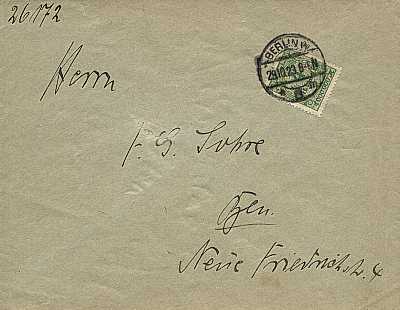 26172
BERLIN W
29.10.23.6-7N
Herrn
F. G. Sohre
Neue Friedrichstr. 4